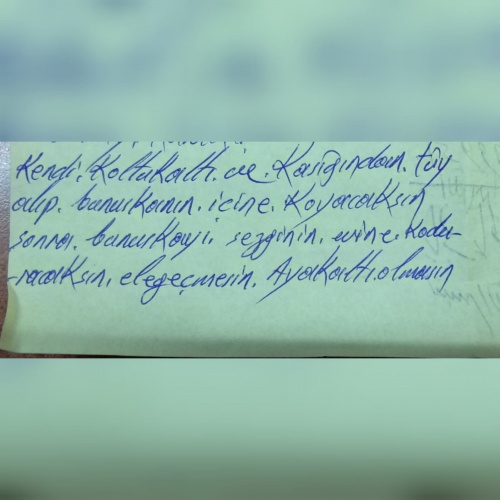 Kendi. Koltukaltı. ve. Kasığından. tüy
alıp. bunuskanın. içine. Koyacaksın
sonra. bunuskayı. sezginin. evine. Kodu-
racaksın. elegeçmesin. Ayakaltı.olmasın